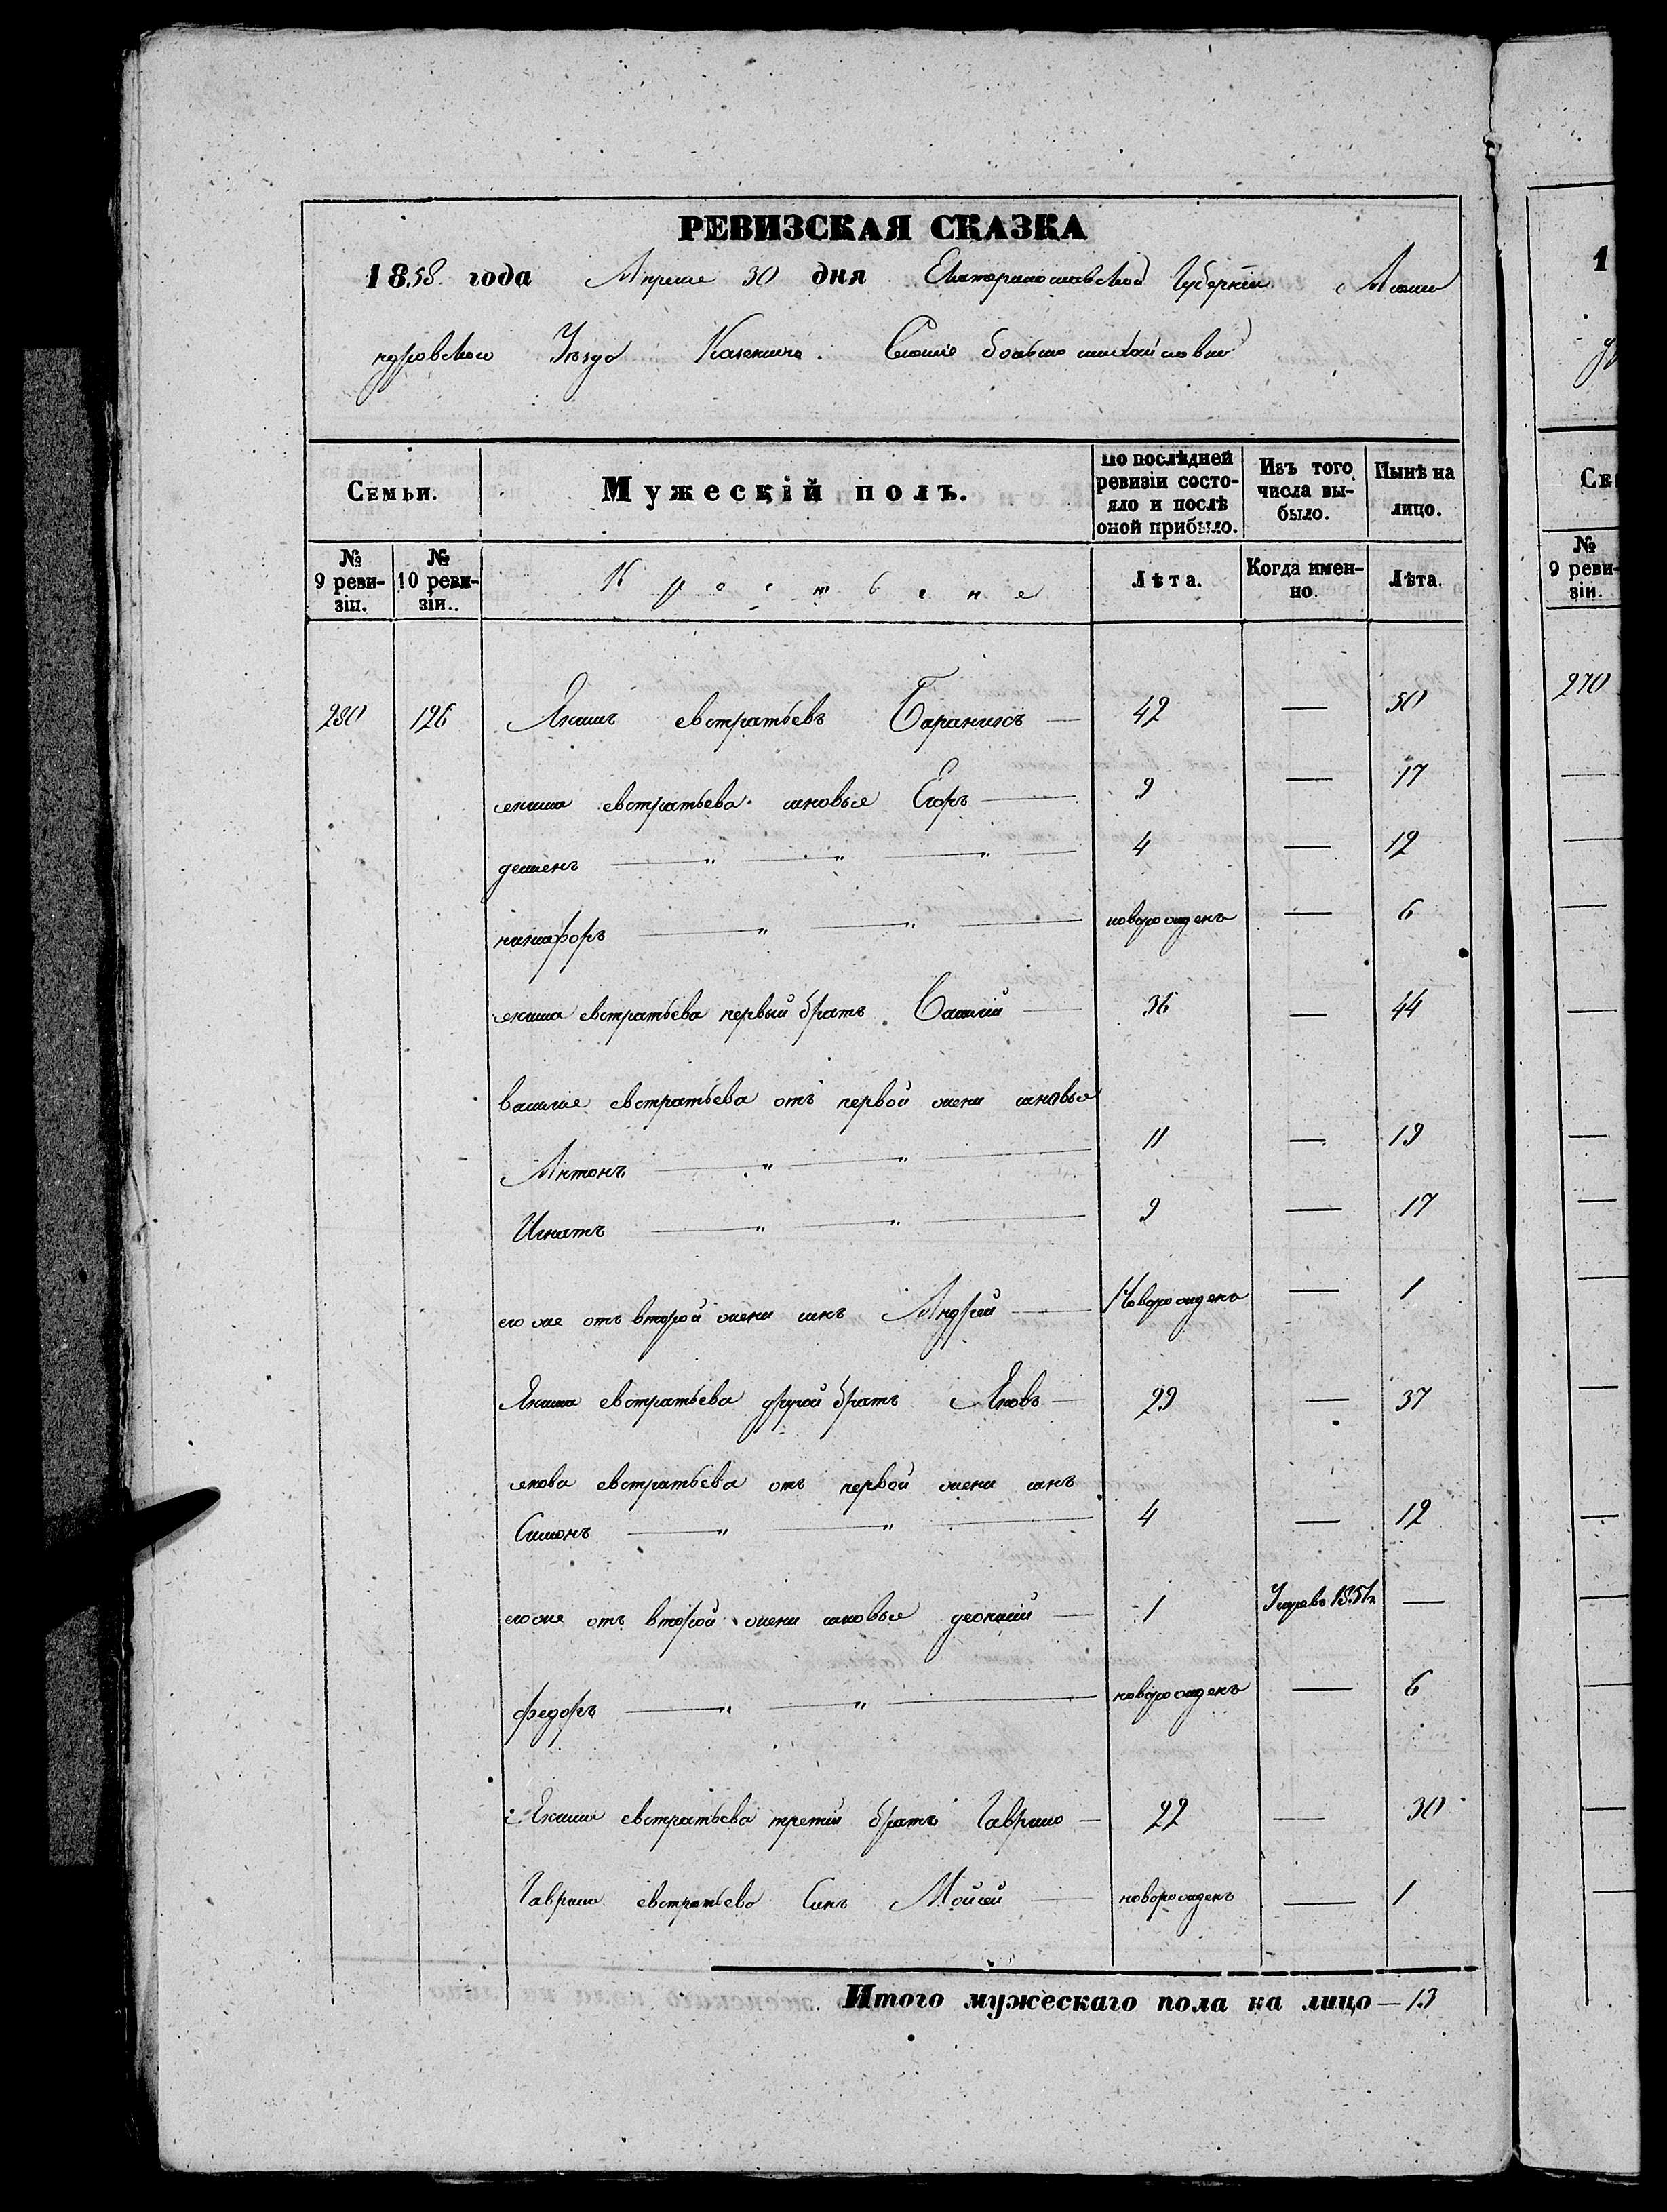 РЕВИЗСКАЯ СКАЗКА
1858 года Апреля 30 дня Екатеринославской Губернiи Алекса
ндровского Уезда Казенного Селенiя большо михайловки
Семьи. Мужескiй полъ. По послѣдней ревизiи состояло и послѣ оной прибыло. Изъ того числа выбыло. Нынѣ на лицо.
№ 9 ревизiи. № 10 ревизiи. Крестьяне Лѣта. Когда именно. Лѣта.
280 126 Якимъ евстратьевъ Бараникъ — 42 — 50
якима евстратьева сыновье Егоръ — 9 — 17
демьенъ — " — " — " — 4 — 12
никифоръ — " — " — новорожденъ — 6
якима евстратьева первый братъ Василiй — 36 — 44
василiе евстратьева отъ первой жены сыновье
Антонъ — " — " — 11 — 19
Игнатъ — " — " — 9 — 17
его же отъ второй жены сынъ Андрей — Новорожденъ — 1
Якима евстратьева другой братъ Яковъ — 29 — 37
якова евстратьева отъ первой жены сынъ
Симонъ — " — " — 4 — 12
его же отъ второй жены сыновье — 1 Умре въ 1851г. —
федоръ — " — " — новорожденъ — 6
Якима евстратьева третiй братъ Гаврило — 22 — 30
Гаврила евстратьева Сынъ Мойсей — новорожденъ — 1
Итого мужескаго пола на лицо — 13
1
Се
№ 9 ревизiи.
270